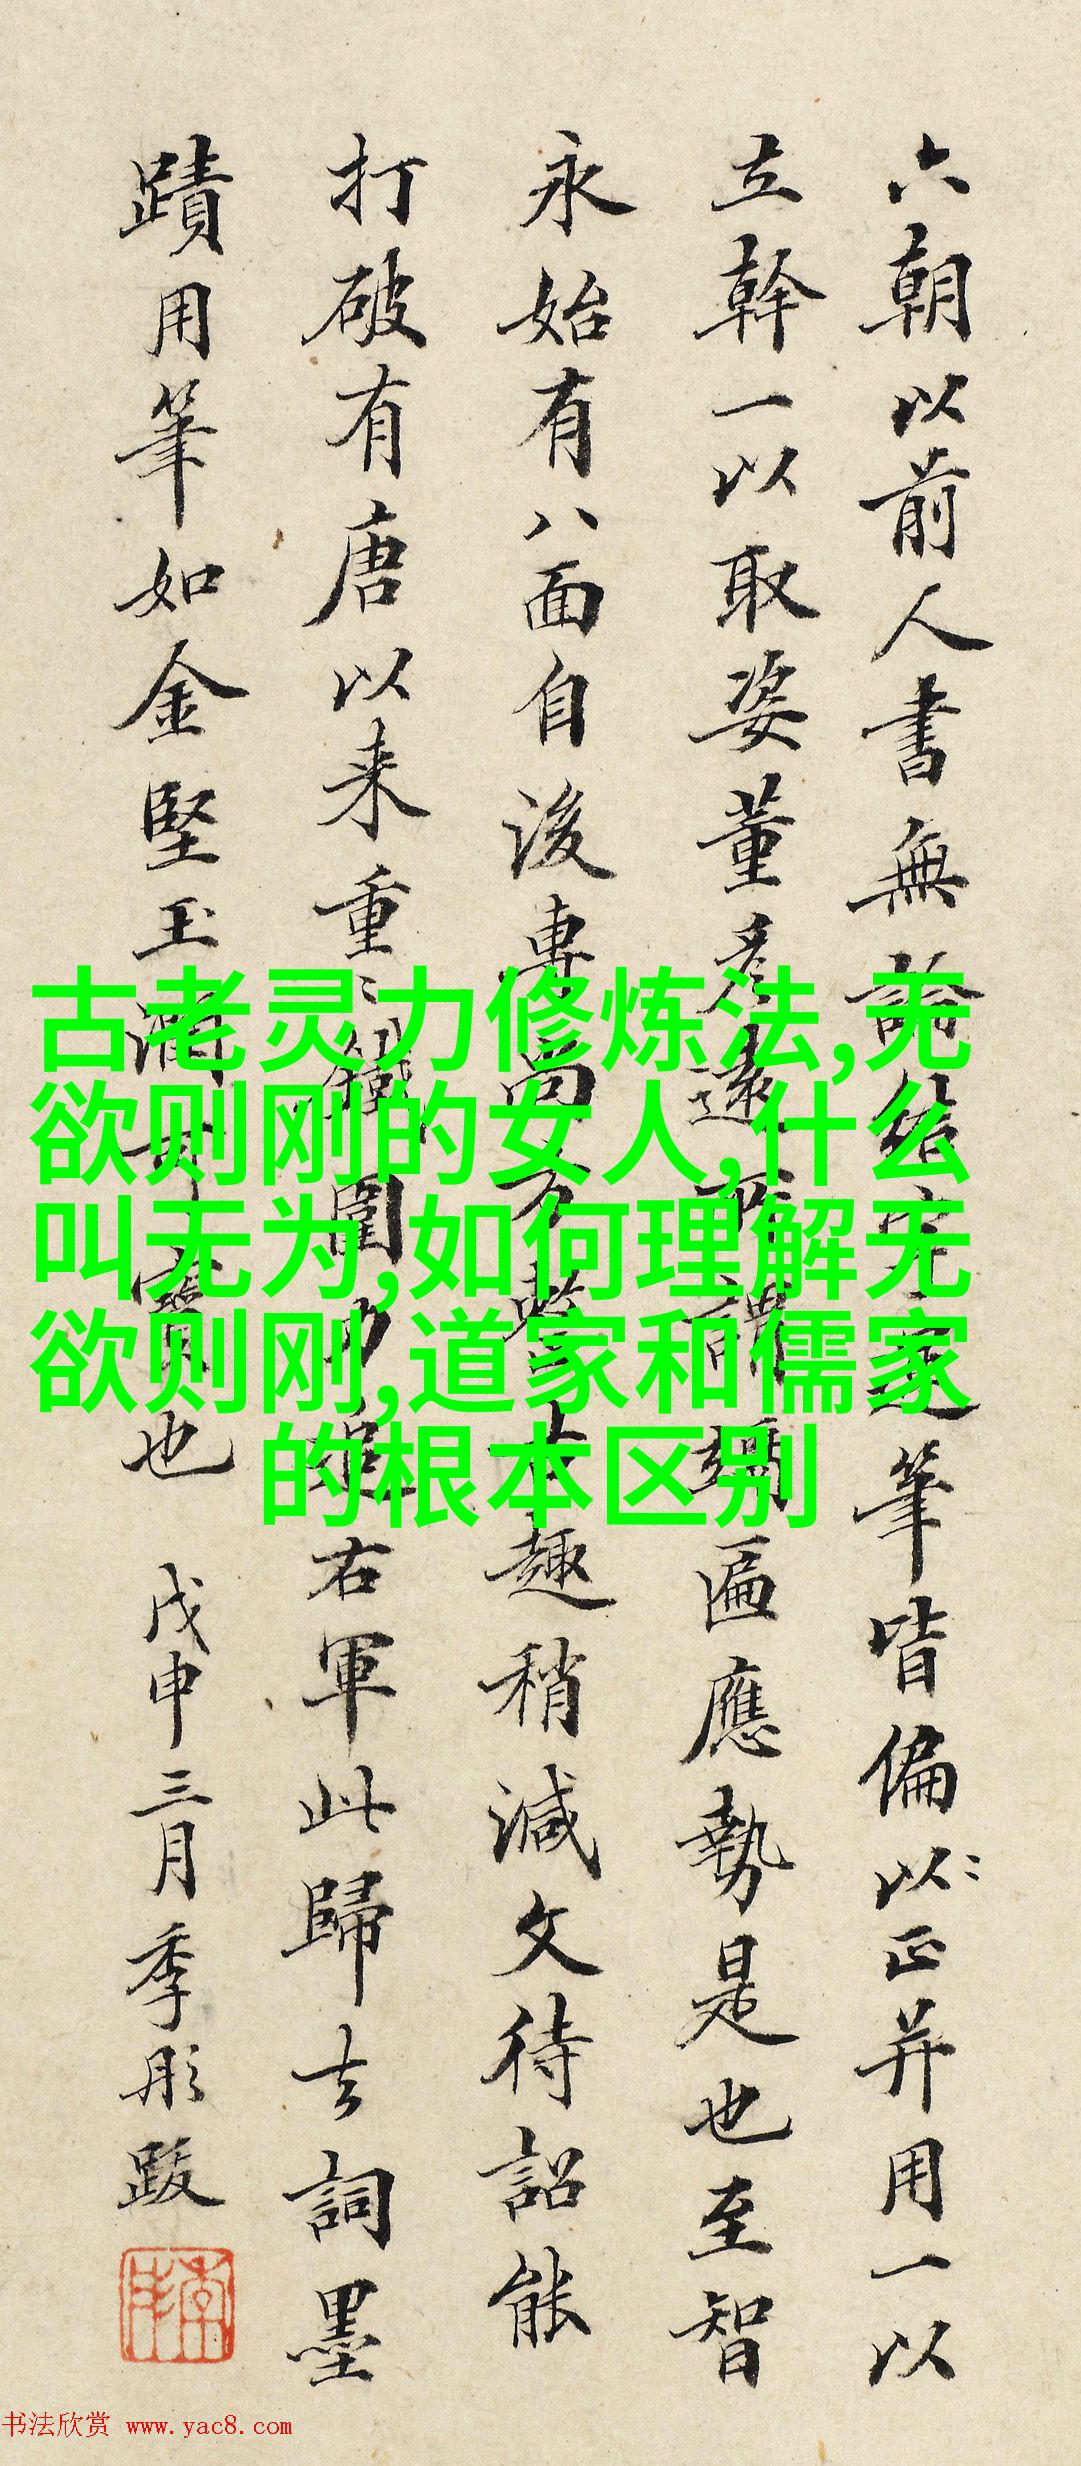 六朝以前人書無論結筆皆偏以正并用一以
立幹一以取姿董彥遠所謂匾應勢是也至智
永始有八面自後專尚方整古趣稍減文待詔能
打破有唐以来重〻鐵圍力追右軍此歸去詞墨
蹟用筆如金堅玉潤可寶也 戊申三月季彤跋
古老灵力修炼法,无
欲则刚的女人,什么
叫无为,如何理解无
欲则刚,道家和儒家
的根本区别
书法欣赏 www.yac8.com